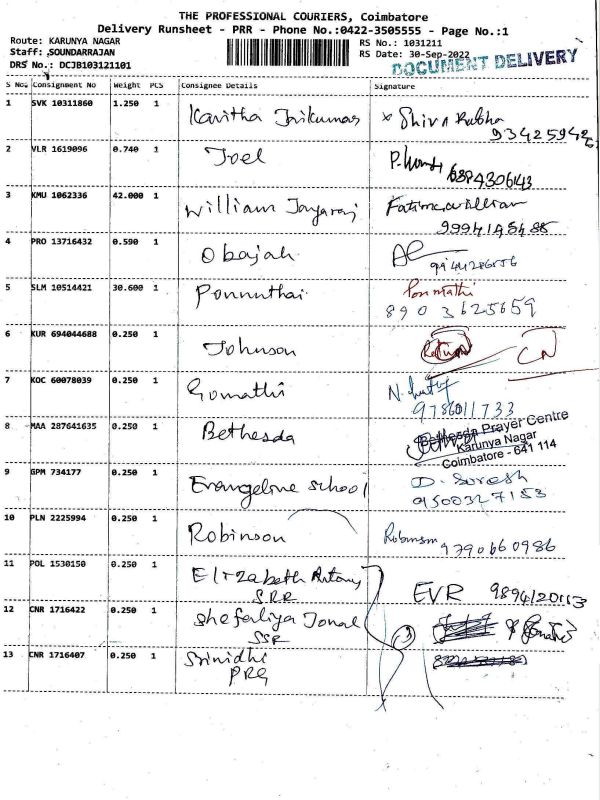 THE PROFESSIONAL COURIERS, Coimbatore
Delivery Runsheet - PRR - Phone No.:0422-3505555 - Page No.:1
Route: KARUNYA NAGAR RS No.: 1031211
Staff: SOUNDARRAJAN RS Date: 30-Sep-2022
DRS No.: DCJB103121101 DOCUMENT DELIVERY
S No. Consignment No Weight PCS Consignee Details Signature
1 SVK 10311860 1.250 1 Kavitha Jaikumar x Shiva Rubha
93425942
2 VLR 1619096 0.740 1 Joel
6394306143
3 KMU 1062336 42.000 1 William Jayaraj Fatima william
4 PRO 13716432 0.590 1 Obajah
5 SLM 10514421 30.600 1 Ponnuthai Ponmathi
8903625659
6 KUR 694044688 0.250 1 Johnson Return CN
7 KOC 60078039 0.250 1 Gomathi
9786011733
8 MAA 287641635 0.250 1 Bethesda Bethesda Prayer Centre
Karunya Nagar
Coimbatore - 641 114
9 GPM 734177 0.250 1 Evangeline school D. Suresh
9500327153
10 PLN 2225994 0.250 1 Robinson Robinson 9790660986
11 POL 1530150 0.250 1 Elizabeth Antony EVR 9894120113
SRR
12 CNR 1716422 0.250 1 Shefaliya Jonal
SSR
13 CNR 1716407 0.250 1 Srinidhi
PRG